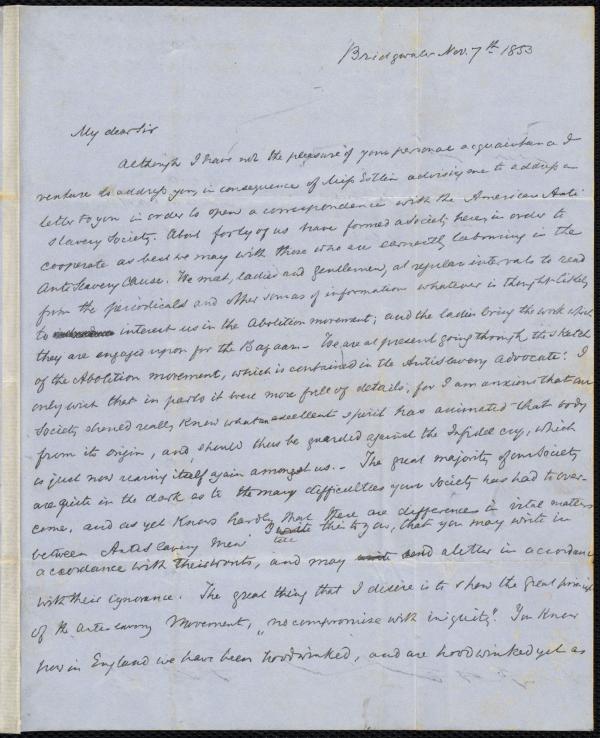 Bridgwater Nov. 7th 1853
My dear Sir
Although I have not the pleasure of your personal acquaintance I
venture to address you, in consequence of Miss Estlin advising me to address a
letter to you in order to open a correspondence with the American Anti
Slavery Society. About forty of us have formed a Society here, in order to
cooperate as best we may with those who are earnestly labouring in the
Anti Slavery Cause. We meet, ladies and gentlemen, at regular intervals to read
from the periodicals and other sources of information whatever is thought likely
to interest us in the Abolition movement; and the ladies bring the work which
they are engaged upon for the Bazaar. We are at present going through the sketch
of the Abolition movement, which is contained in the Antislavery Advocate: I
only wish that in parts it were more full of details; for I am anxious that our
Society should really know what an excellent spirit has animated that body
from its origin, and should thus be guarded against the Infidel cry, which
is just now rearing itself again amongst us. - The great majority of our Society
are quite in the dark as to the many difficulties your Society has had to over-
come, and as yet know hardly that there are differences in vital matters
between Antislavery men. I write tell this to you, that you may write in
accordance with their wants, and may send a letter in accordance
with their ignorance. The great thing that I desire is to show the great principle
of the anti-slavery Movement, "no compromise with iniquity". You know
how in England we have been hoodwinked, and are hoodwinked yet as